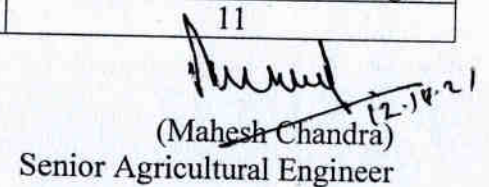 11
(Mahesh Chandra)
Senior Agricultural Engineer